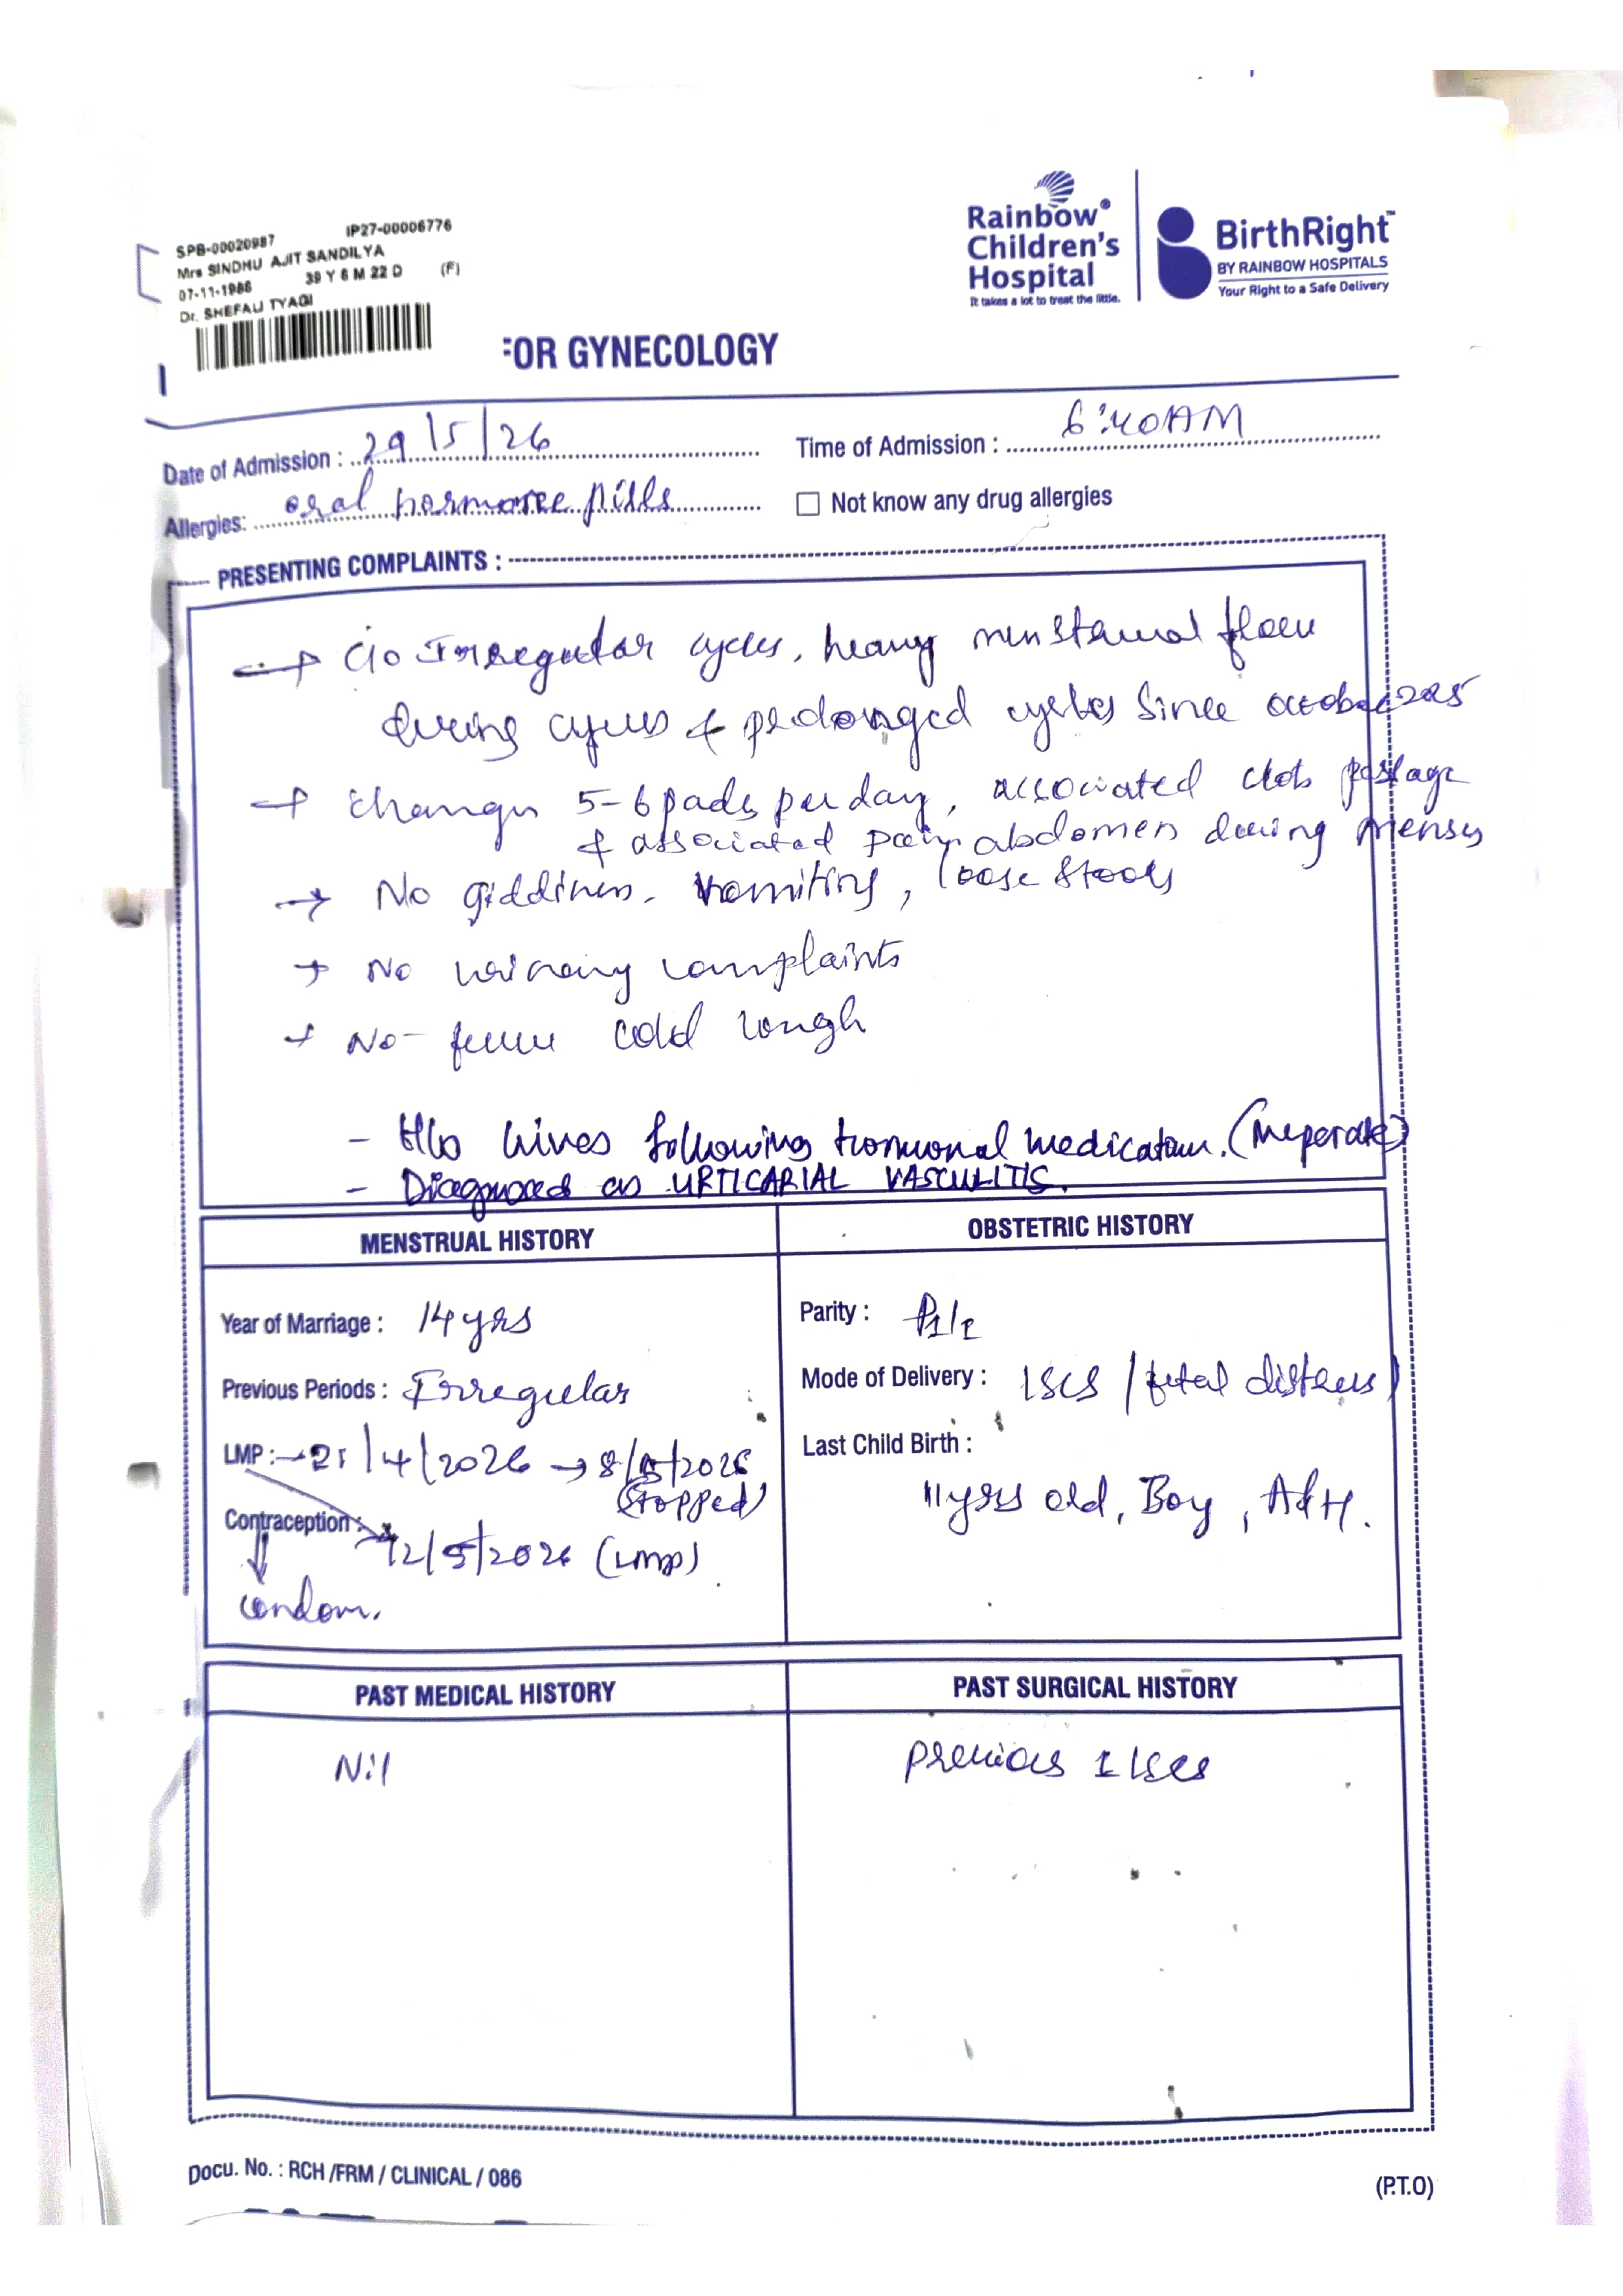 SPB-00020987 IP27-00006776
Mrs SINDHU AJIT SANDILYA
07-11-1986 39 Y 6 M 22 D (F)
Dr. SHEFALI TYAGI
Rainbow® Children's Hospital
It takes a lot to treat the little.
BirthRight™
BY RAINBOW HOSPITALS
Your Right to a Safe Delivery
FOR GYNECOLOGY
Date of Admission : 29/5/26 Time of Admission : 6:40AM
Allergies: oral hormone pills Not know any drug allergies
PRESENTING COMPLAINTS :
→ C/o Irregular cycles, heavy menstrual flow
during cycles & prolonged cycles Since october 2025
→ Changes 5-6 pads per day, associated clots passage
& associated pain abdomen during menses
→ No giddiness, vomiting, loose stools
→ No urinary complaints
→ No fever cold cough
- H/o hives following hormonal medication. (Meperate)
- Diagnosed as URTICARIAL VASCULITIS.
MENSTRUAL HISTORY
Year of Marriage : 14 yrs
Previous Periods : Irregular
LMP : → 21/4/2026 → 8/5/2026
(Stopped)
Contraception : 12/5/2026 (LMP)
condom.
OBSTETRIC HISTORY
Parity : P1L1
Mode of Delivery : LSCS (fetal distress)
Last Child Birth :
11 yrs old, Boy, A&H.
PAST MEDICAL HISTORY
Nil
PAST SURGICAL HISTORY
Previous 1 LSCS
Docu. No. : RCH /FRM / CLINICAL / 086
(P.T.O)